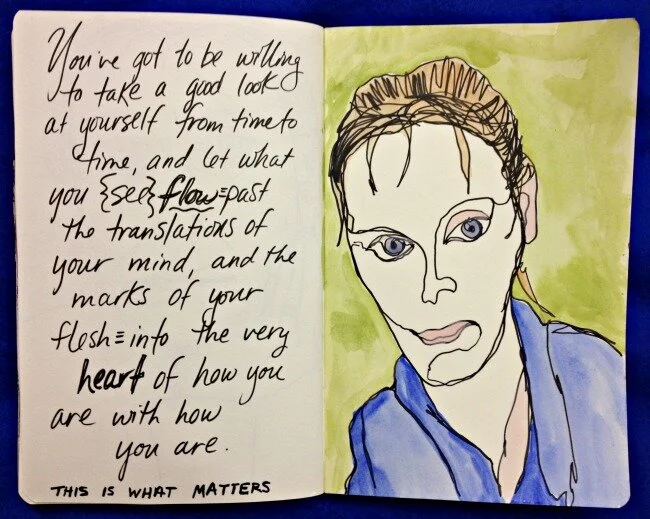 You've got to be willing
to take a good look
at yourself from time to
time, and let what
you {see} flow=past
the translations of
your mind, and the
marks of your
flesh≡into the very
heart of how you
are with how
you are.
THIS IS WHAT MATTERS